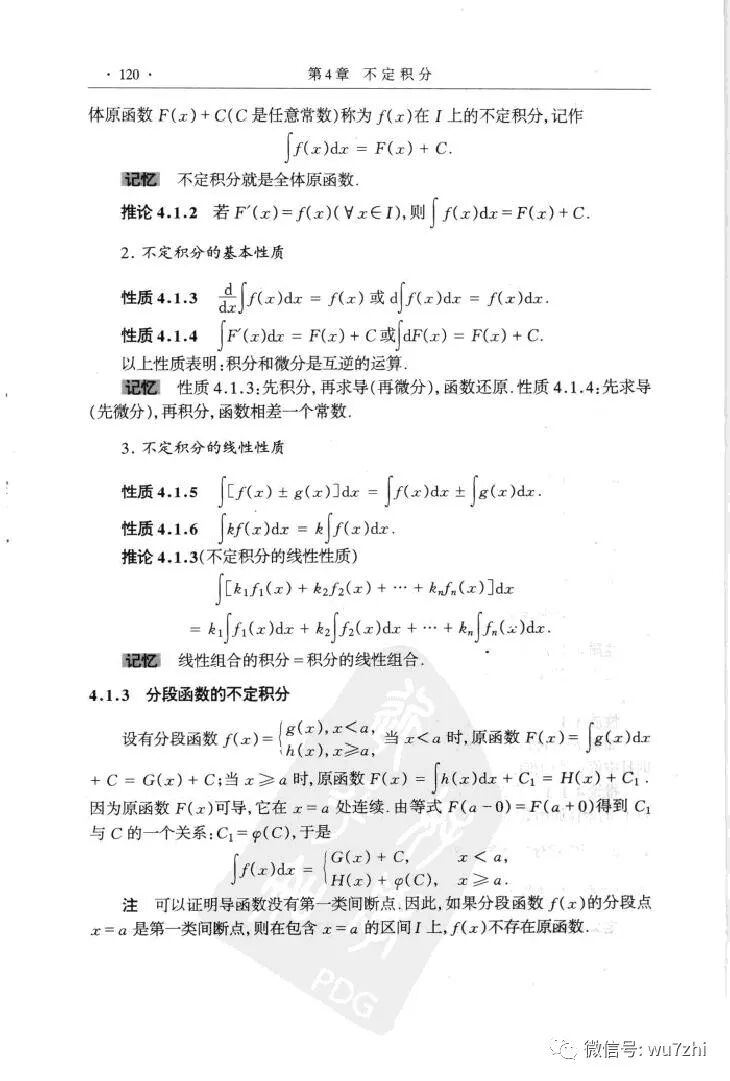 · 120 · 第4章 不定积分
体原函数 F(x)+C(C 是任意常数)称为 f(x)在 I 上的不定积分,记作
∫f(x)dx = F(x) + C.
记忆 不定积分就是全体原函数.
推论 4.1.2 若 F′(x)=f(x)(∀x∈I),则∫f(x)dx=F(x)+C.
2. 不定积分的基本性质
性质 4.1.3 d/dx∫f(x)dx = f(x) 或 d∫f(x)dx = f(x)dx.
性质 4.1.4 ∫F′(x)dx = F(x) + C 或∫dF(x) = F(x) + C.
以上性质表明:积分和微分是互逆的运算.
记忆 性质 4.1.3:先积分,再求导(再微分),函数还原.性质 4.1.4:先求导
(先微分),再积分,函数相差一个常数.
3. 不定积分的线性性质
性质 4.1.5 ∫[f(x) ± g(x)]dx = ∫f(x)dx ± ∫g(x)dx.
性质 4.1.6 ∫kf(x)dx = k∫f(x)dx.
推论 4.1.3(不定积分的线性性质)
∫[k₁f₁(x) + k₂f₂(x) + ⋯ + kₙfₙ(x)]dx
= k₁∫f₁(x)dx + k₂∫f₂(x)dx + ⋯ + kₙ∫fₙ(x)dx.
记忆 线性组合的积分=积分的线性组合.
4.1.3 分段函数的不定积分
设有分段函数 f(x)={g(x),x<a, h(x),x≥a, 当 x<a 时,原函数 F(x)=∫g(x)dx
+ C = G(x) + C;当 x≥a 时,原函数 F(x) = ∫h(x)dx + C₁ = H(x) + C₁.
因为原函数 F(x)可导,它在 x=a 处连续.由等式 F(a-0)=F(a+0)得到 C₁
与 C 的一个关系:C₁=φ(C),于是
∫f(x)dx = {G(x) + C, x < a, H(x) + φ(C), x ≥ a.
注 可以证明导函数没有第一类间断点.因此,如果分段函数 f(x)的分段点
x=a 是第一类间断点,则在包含 x=a 的区间 I 上,f(x)不存在原函数.
PDG
微信号: wu7zhi